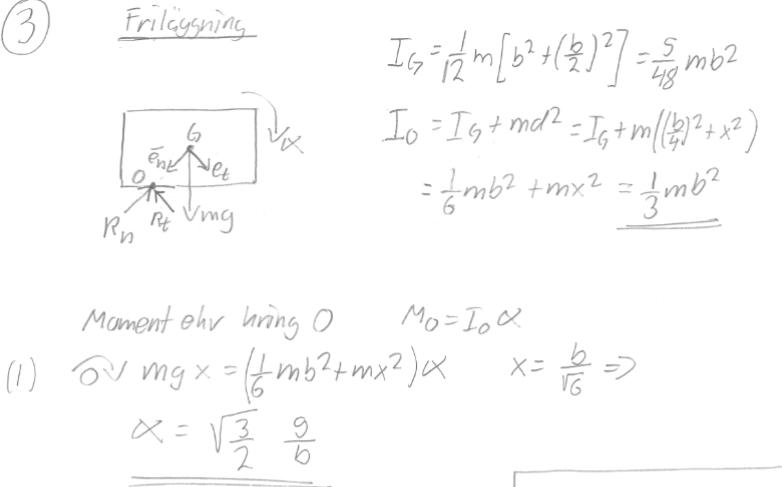 3 Friläggning
I_G = 1/12 m[b² + (b/2)²] = 5/48 mb²
I_O = I_G + md² = I_G + m((b/4)² + x²)
= 1/6 mb² + mx² = 1/3 mb²
G α
e_n e_t
O
R_n R_t mg
Moment ekv kring O M_O = I_O α
(1) O mg x = (1/6 mb² + mx²) α x = b/√6 ⇒
α = √(3/2) g/b